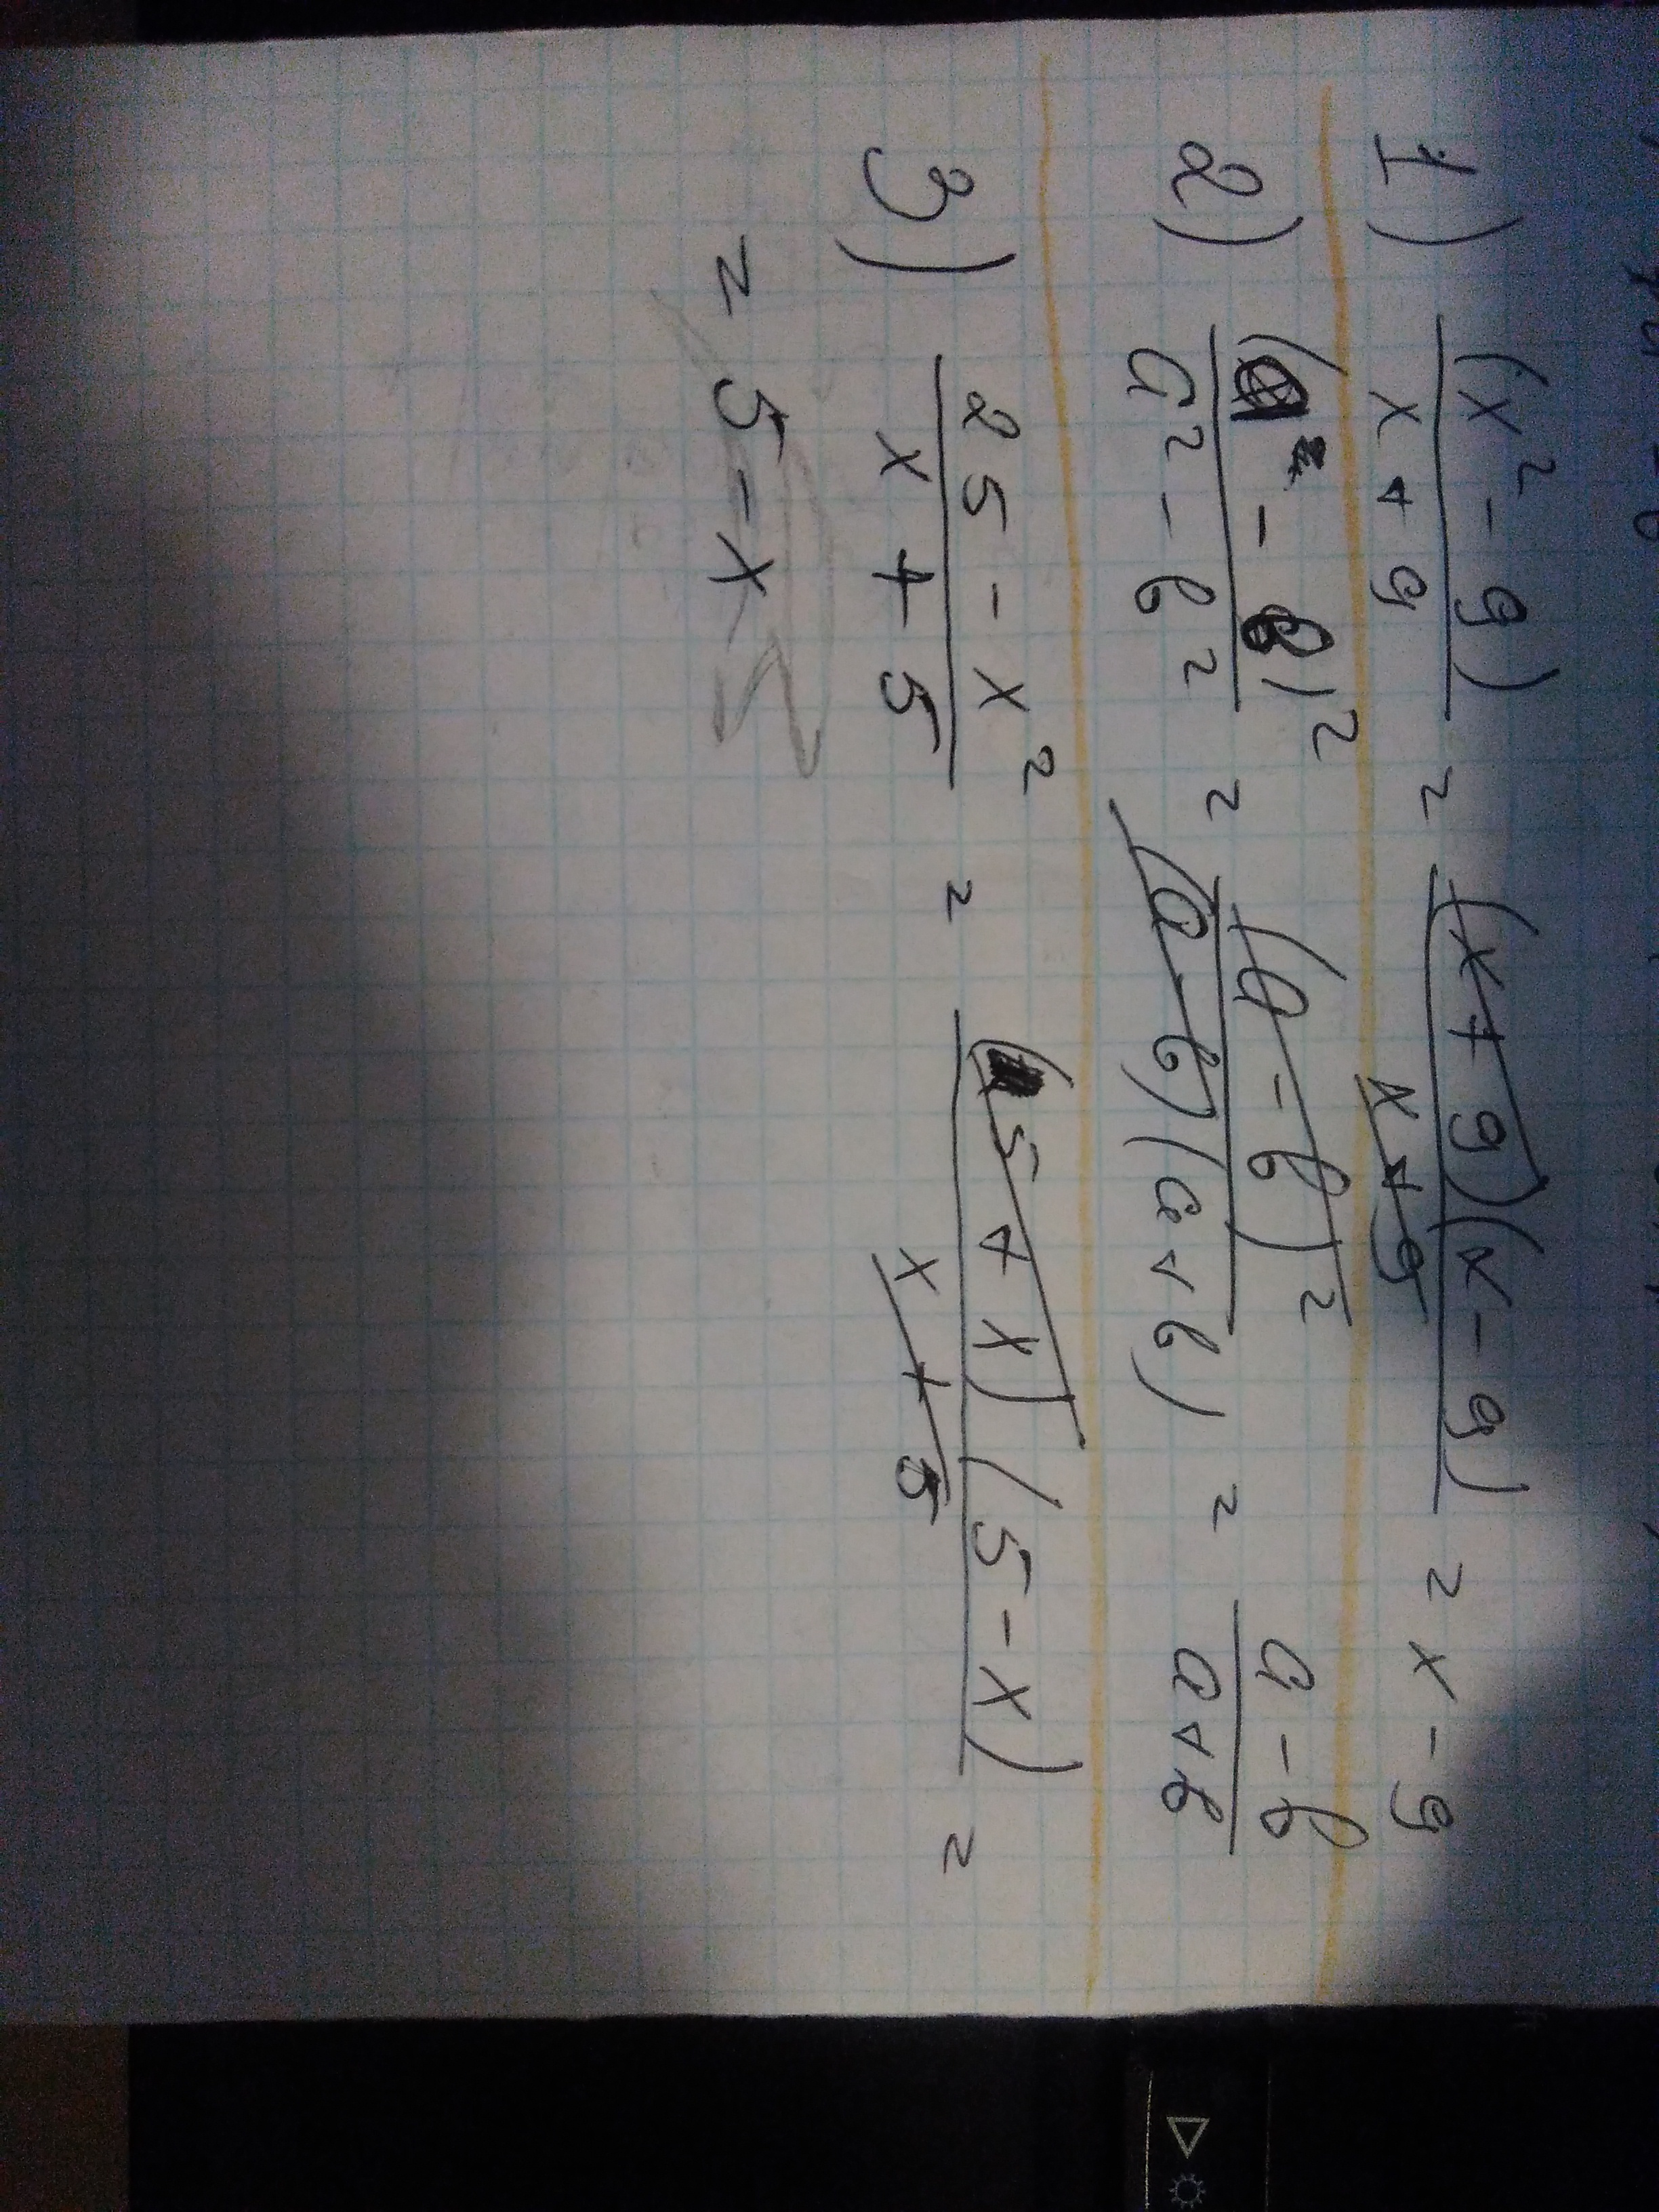 1) (x² - 9) / (x + 9) = (x + 9)(x - 9) / (x + 9) = x - 9
2) (a - b)² / (a² - b²) = (a - b)² / ((a - b)(a + b)) = (a - b) / (a + b)
3) (25 - x²) / (x + 5) = (5 + x)(5 - x) / (x + 5) =
= 5 - x